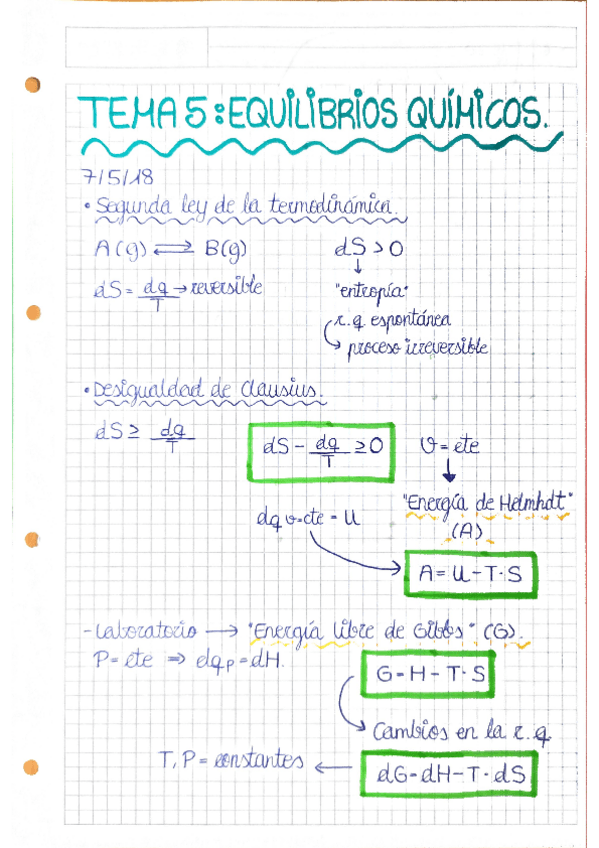 TEMA 5: EQUILIBRIOS QUÍMICOS.
7/5/18
• Segunda ley de la termodinámica.
A(g) ⇌ B(g)    dS > 0
dS = dq/T → reversible    ↓ "entropía"
r.q espontánea
↳ proceso irreversible
• Desigualdad de Clausius.
dS ≥ dq/T    dS - dq/T ≥ 0    V = cte
↓
"Energía de Helmhdt"
dq v=cte = U    (A)
A = U - T·S
- Laboratorio → "Energía libre de Gibbs" (G).
P = cte ⇒ dqp = dH.
G = H - T·S
Cambios en la r.q
T, P = constantes ← dG = dH - T·dS